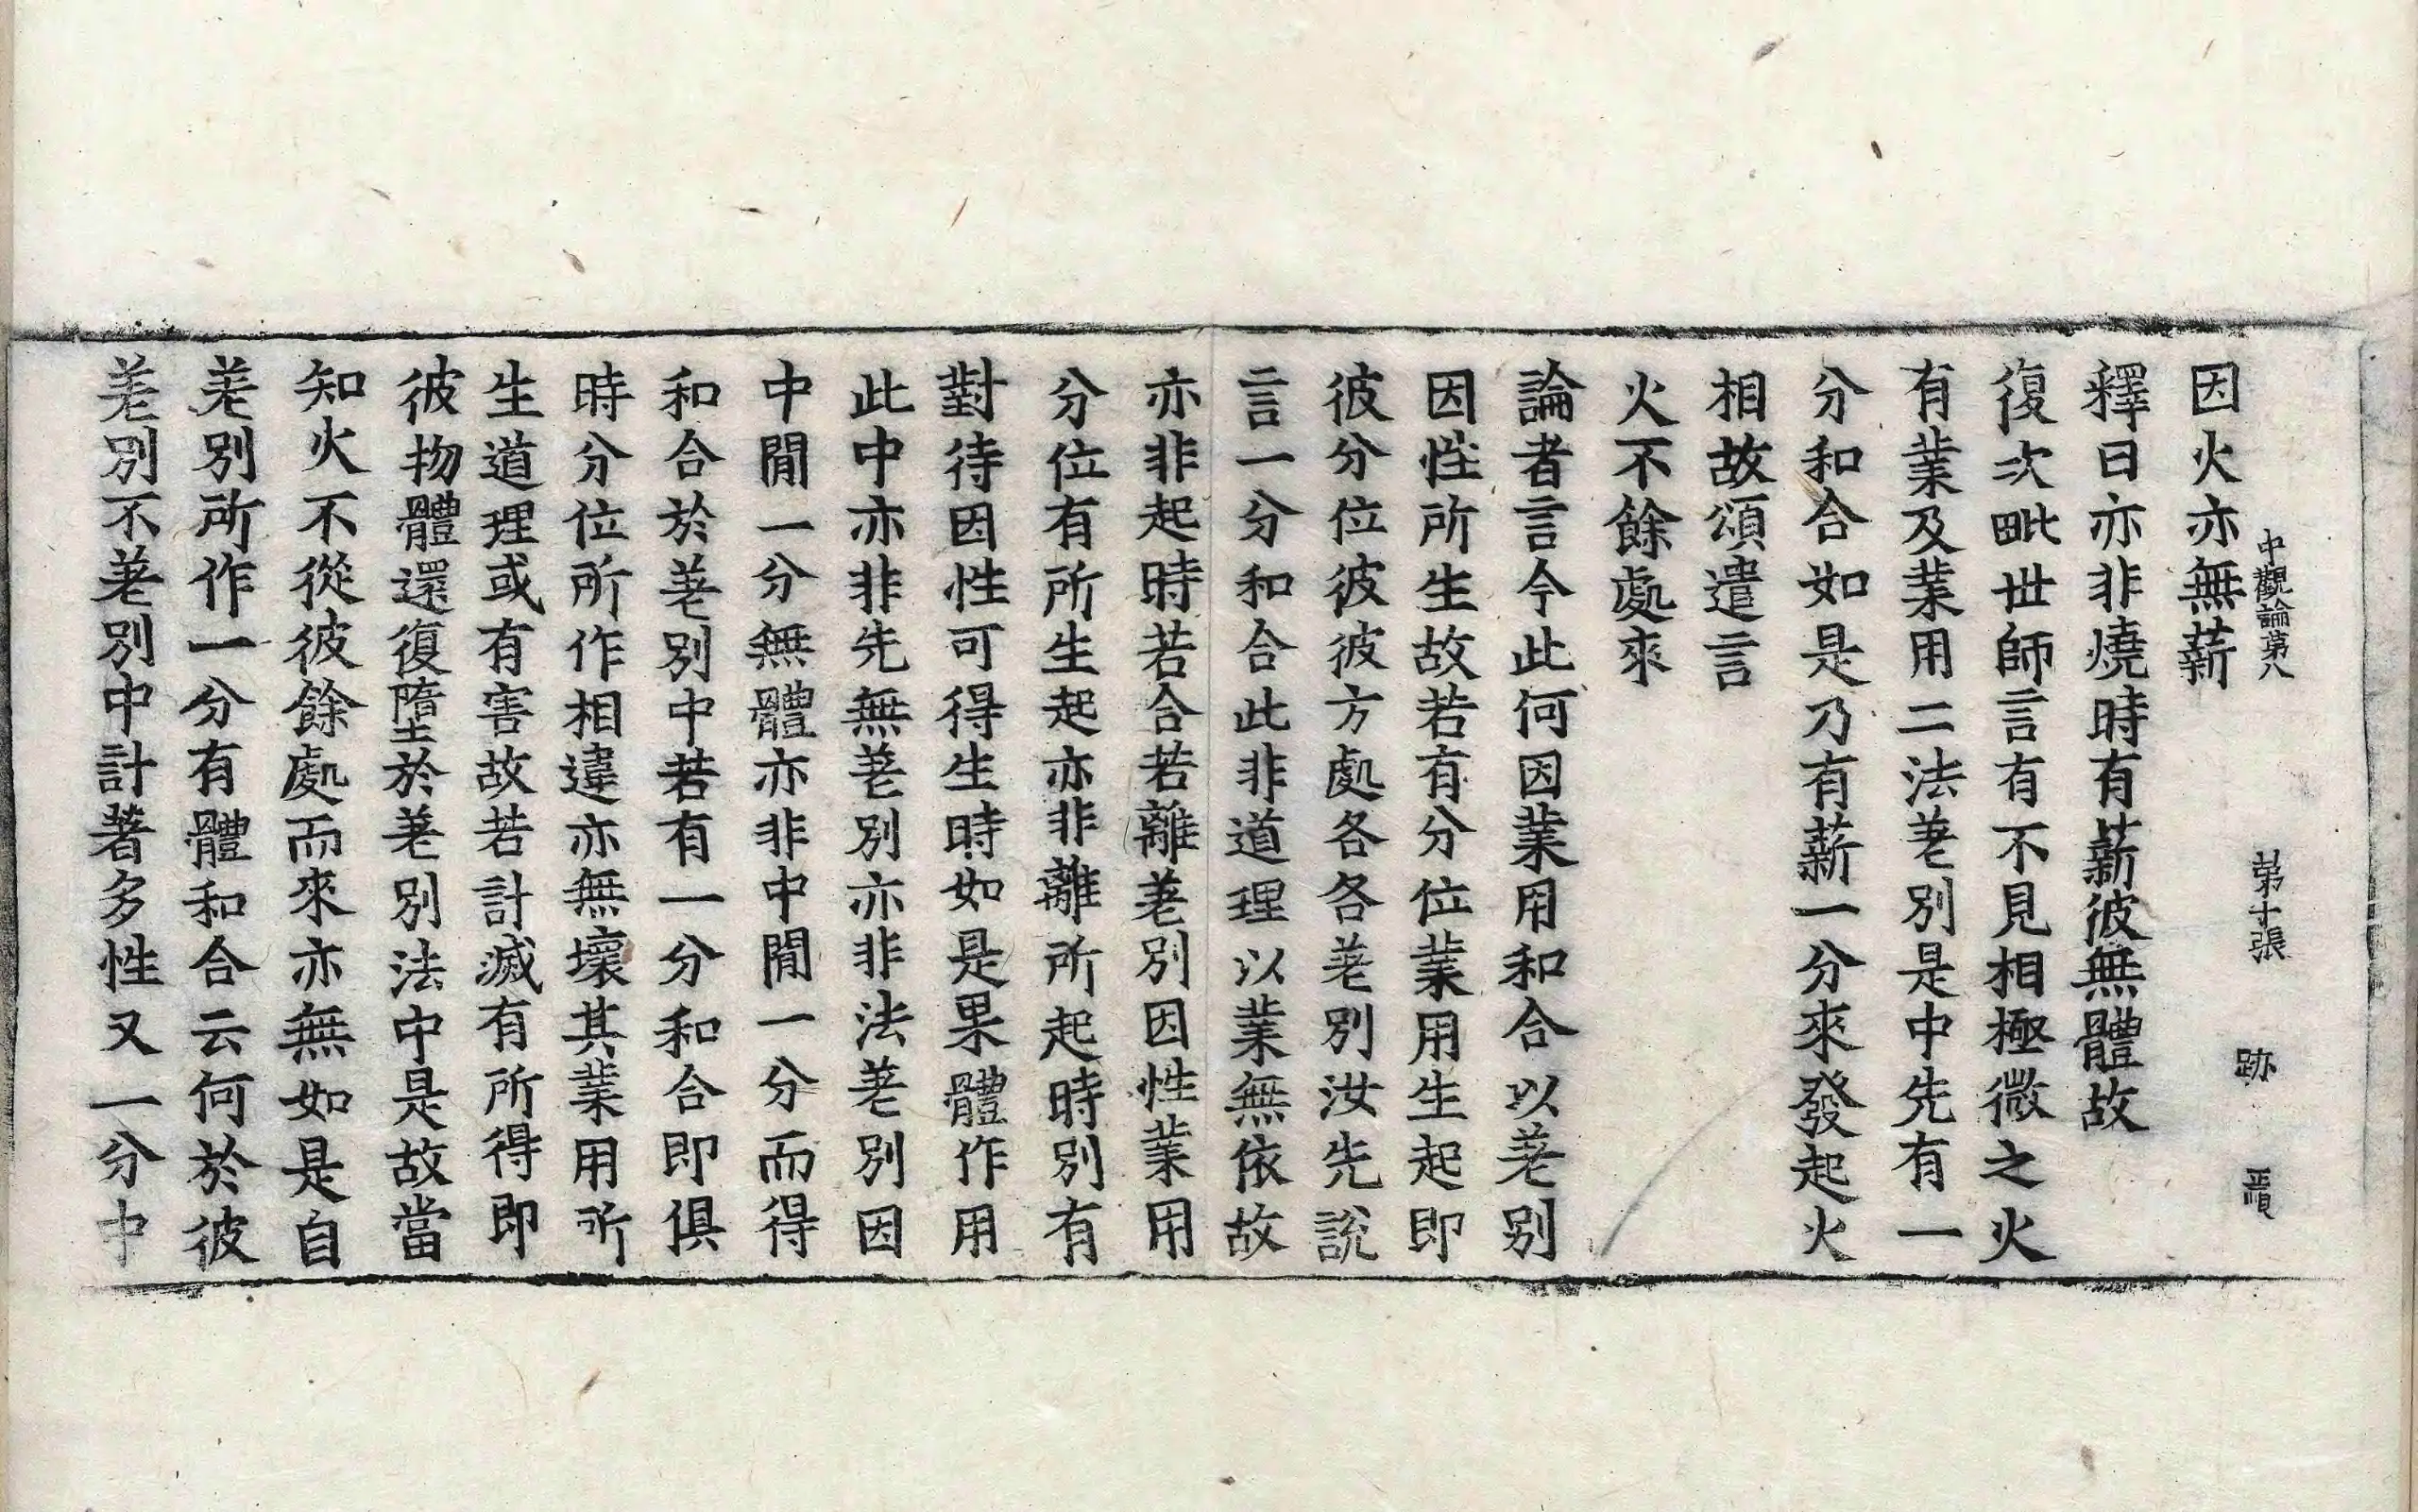 中觀論第八 第十張 跡
因火亦無薪
釋曰亦非燒時有薪彼無體故
復次毗世師言有不見相極微之火
有業及業用二法差別是中先有一
分和合如是乃有薪一分來發起火
相故頌遣言
火不餘處來
論者言今此何因業用和合以差別
因性所生故若有分位業用生起即
彼分位彼彼方處各各差別汝先說
言一分和合此非道理以業無依故
亦非起時若合若離差別因性業用
分位有所生起亦非離所起時別有
對待因性可得生時如是果體作用
此中亦非先無差別亦非法差別因
中閒一分無體亦非中閒一分而得
和合於差別中若有一分和合即俱
時分位所作相違亦無壞其業用所
生道理或有害故若計滅有所得即
彼物體還復墮於差別法中是故當
知火不從彼餘處而來亦無如是自
差別所作一分有體和合云何於彼
差別不差別中計著多性又一分中